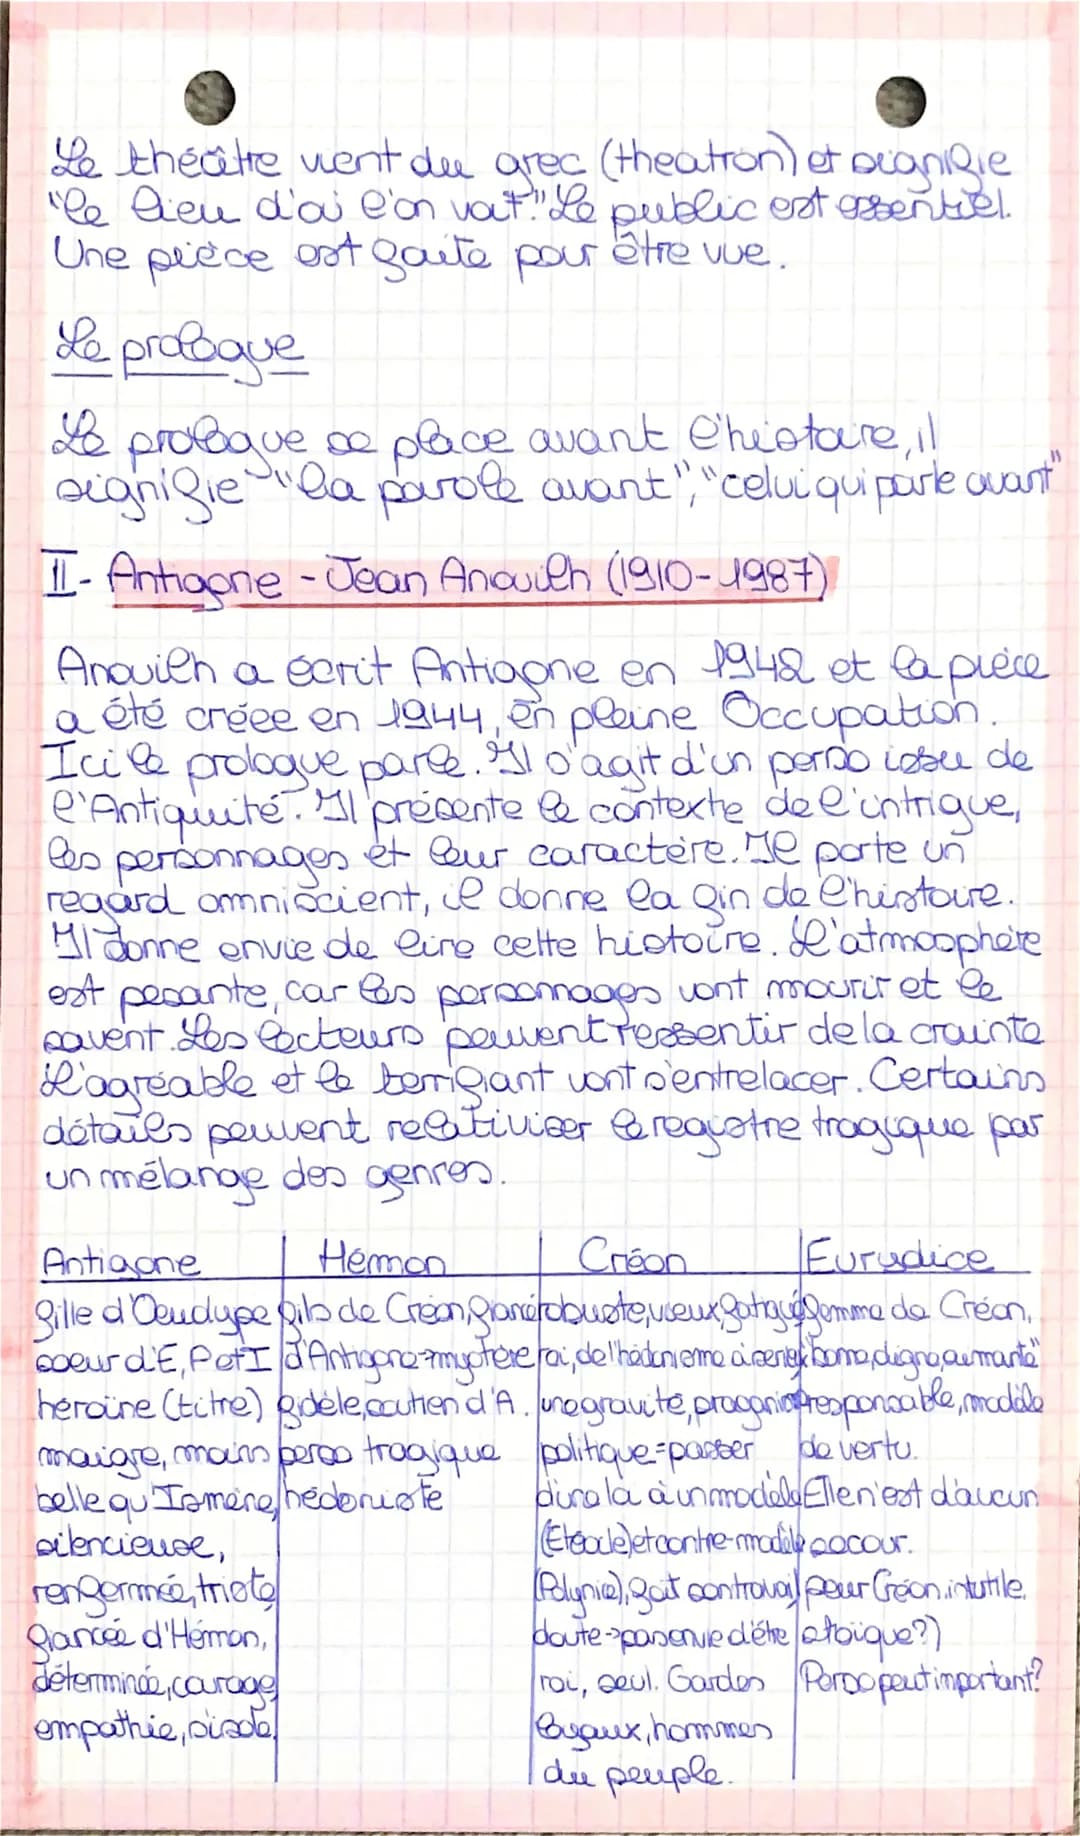 Le théâtre vient du grec (theatron) et signifie
"le lieu d'où l'on voit." Le public est essentiel.
Une pièce est faite pour être vue.
Le prologue
Le prologue se place avant l'histoire, il
signifie "la parole avant", "celui qui parle avant"
II- Antigone - Jean Anouilh (1910-1987)
Anouilh a écrit Antigone en 1942 et la pièce
a été créée en 1944, en pleine Occupation.
Ici le prologue parle. Il s'agit d'un perso issu de
l'Antiquité. Il présente le contexte de l'intrigue,
les personnages et leur caractère. Il porte un
regard omniscient, il donne la fin de l'histoire.
Il donne envie de lire cette histoire. L'atmosphère
est pesante, car les personnages vont mourir et le
savent. Les lecteurs peuvent ressentir de la crainte
L'agréable et le terrifiant vont s'entrelacer. Certains
détails peuvent relativiser le registre tragique par
un mélange des genres.
Antigone | Hémon | Créon | Eurydice
fille d'Oeudype | fils de Créon, fiancé | robuste, vieux, fatigué | femme de Créon,
soeur d'E, P et I | d'Antigone→mystère | roi, de l'hédonisme à | bonne, digne, aimante"
héroïne (titre) | fidèle, soutien d'A. | une gravité, | responsable, modèle
maigre, moins | perso tragique | politique=passer | de vertu.
belle qu'Ismène, | hédoniste | d'un modèle | Elle n'est d'aucun
silencieuse, | (Etéocle) et contre-modèle | secour.
renfermée, triste | (Polynice), fait son travail | pour Créon. inutile,
fiancée d'Hémon, | doute→pas envie d'être | stoïque?)
déterminée, courage, | roi, seul. Gardes | Perso peut important?
empathie, | loyaux, hommes
du peuple.